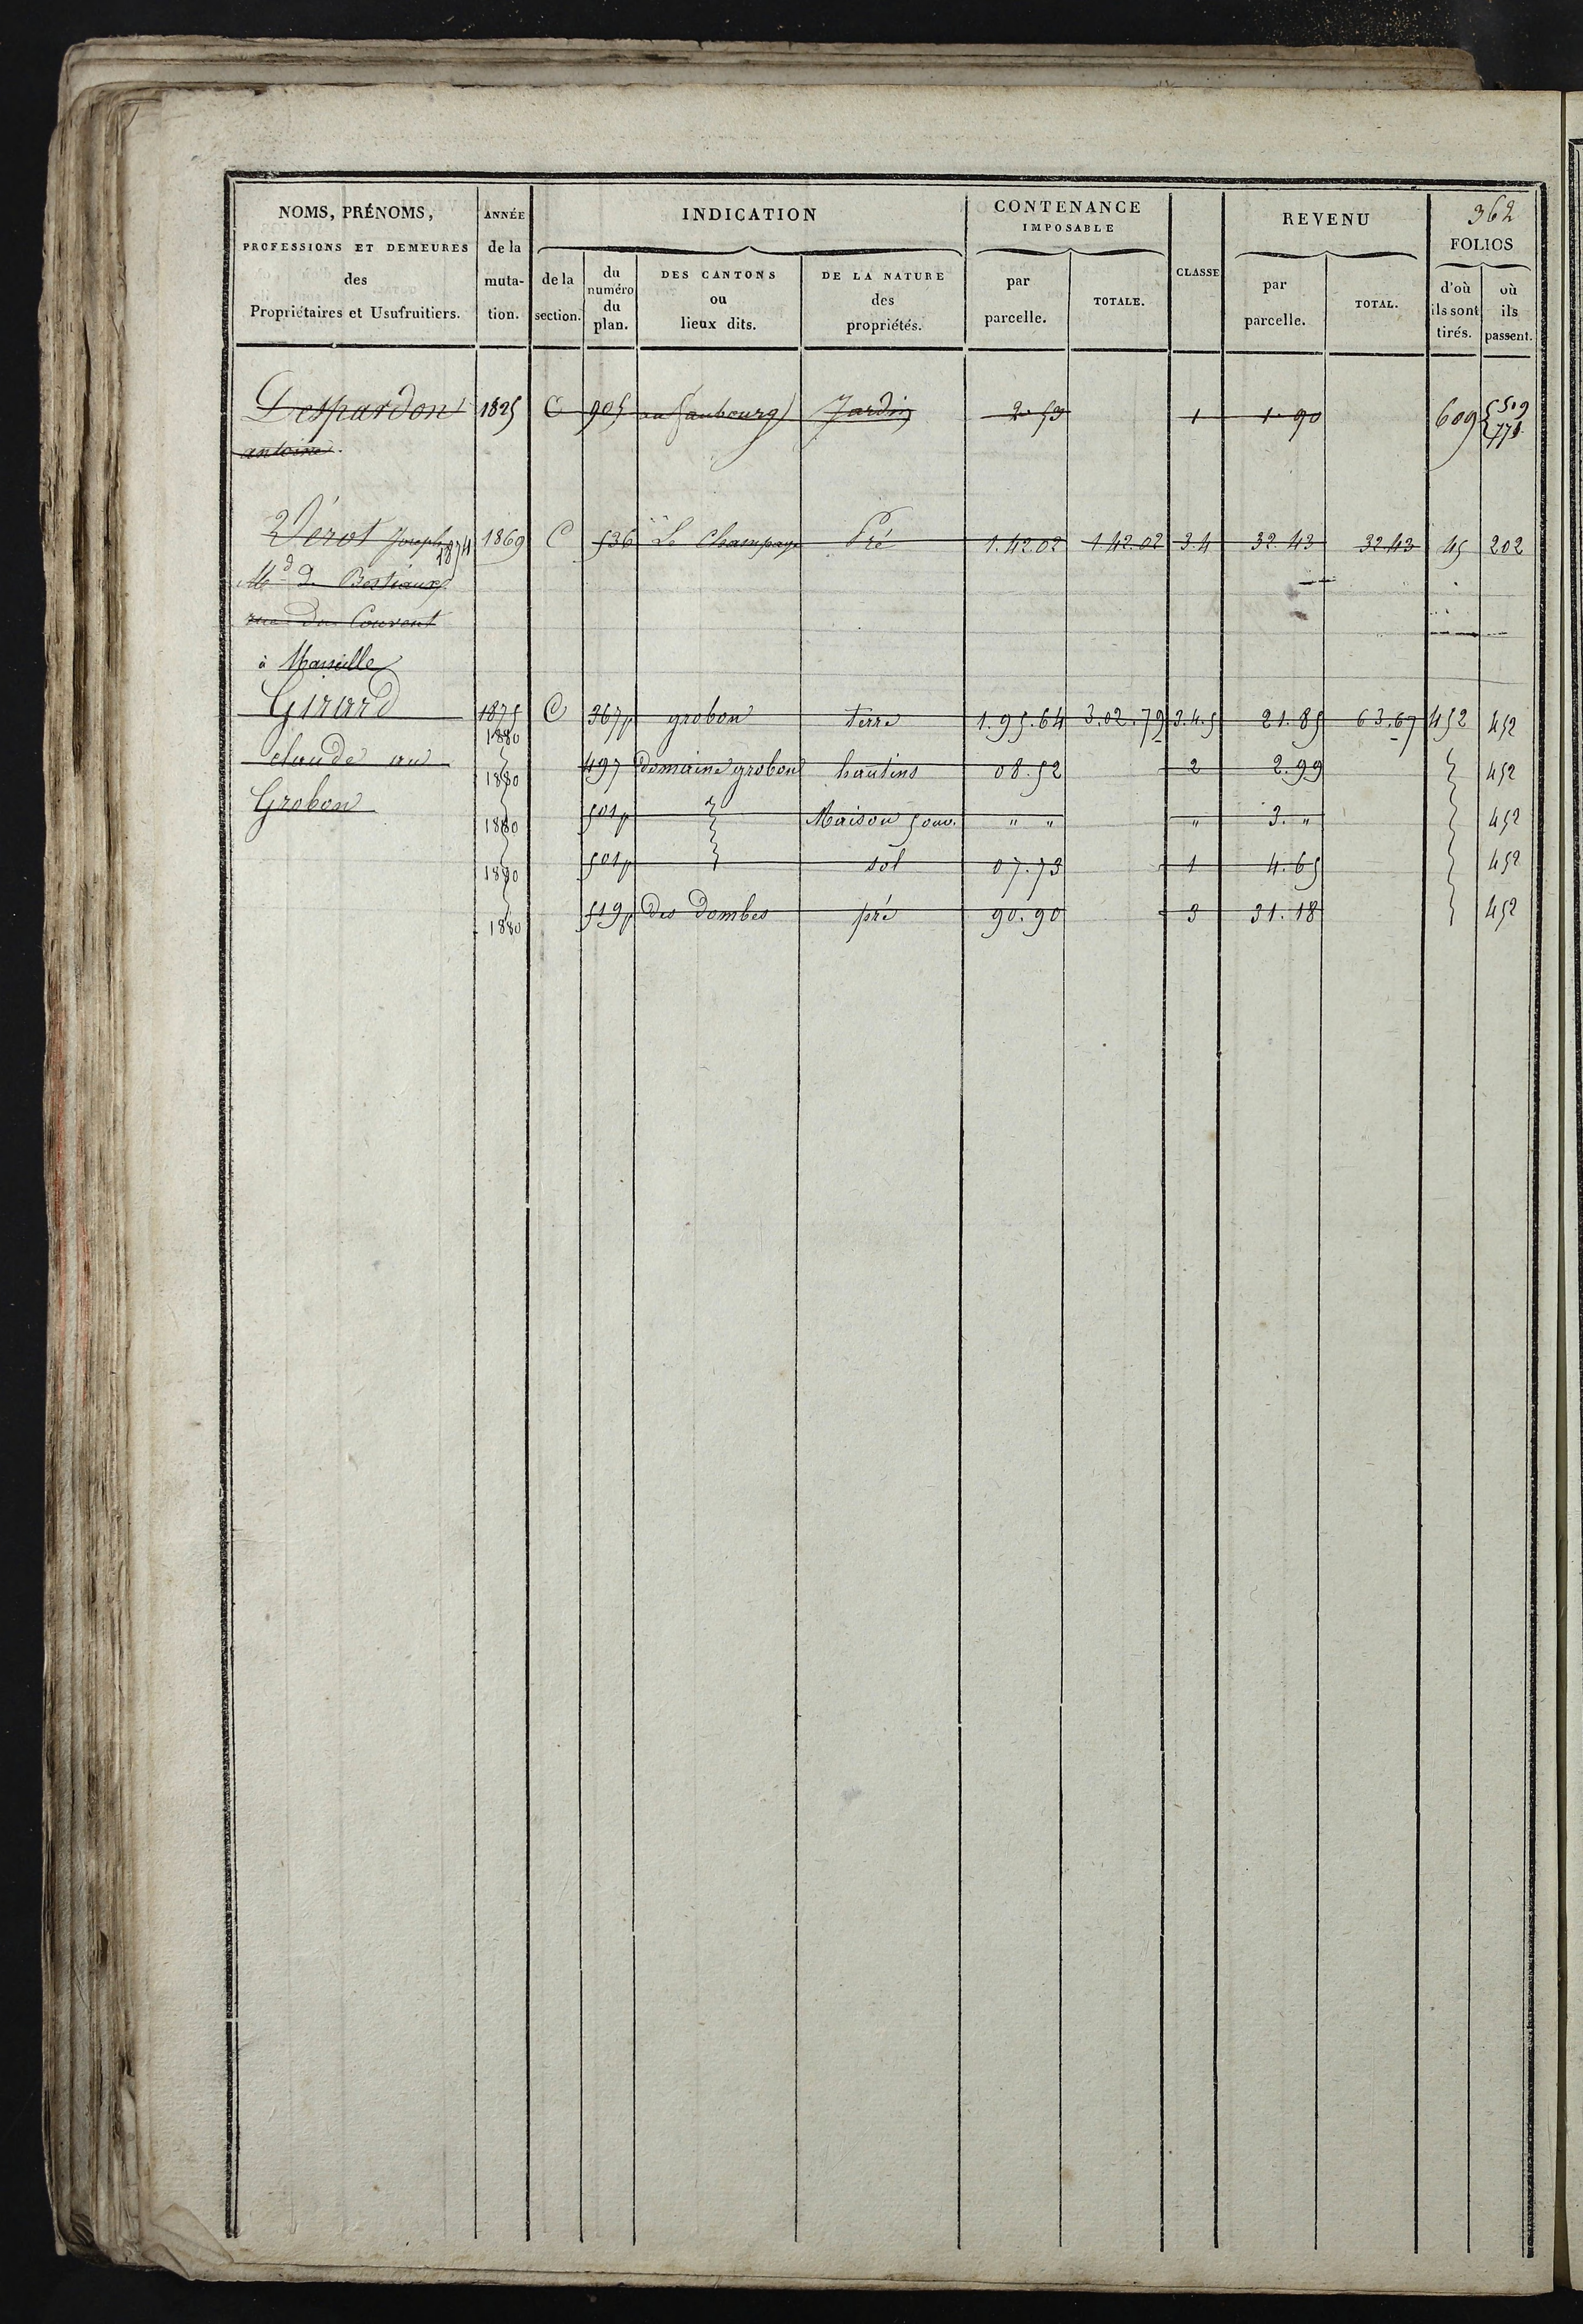 362
NOMS, PRÉNOMS, PROFESSIONS ET DEMEURES des Propriétaires et Usufruitiers.
ANNÉE de la muta- tion.
INDICATION
de la section.
du numéro du plan.
DES CANTONS ou lieux dits.
DE LA NATURE des propriétés.
CONTENANCE IMPOSABLE
par parcelle.
TOTALE.
CLASSE
REVENU
par parcelle.
TOTAL.
FOLIOS
d'où ils sont tirés.
où ils passent.
Despardon 1825 C 905 au faubourg Jardin 2 53 1 1 90 609 509
antoine. 771
Vérot Joseph 1874 1869 C 536 Le Champaye Pré 1.42.02 1.42.02 3.4 32.43 32.43 45 202
Md de Bestiaux
rue du Couvent
à Marseille
Girard 1875 C 367p grobon terre 1.95.64 3.02.79 3.4.5 21.85 63.67 452 452
1880
claude au 497 domaine grobon hautins 08.52 2 2.99 452
1880
Grobon 501p Maison souv. " " " 3. " 452
1880
501p sol 07.73 1 4.65 452
1880
519p des Dombes pré 90.90 3 31.18 452
1880